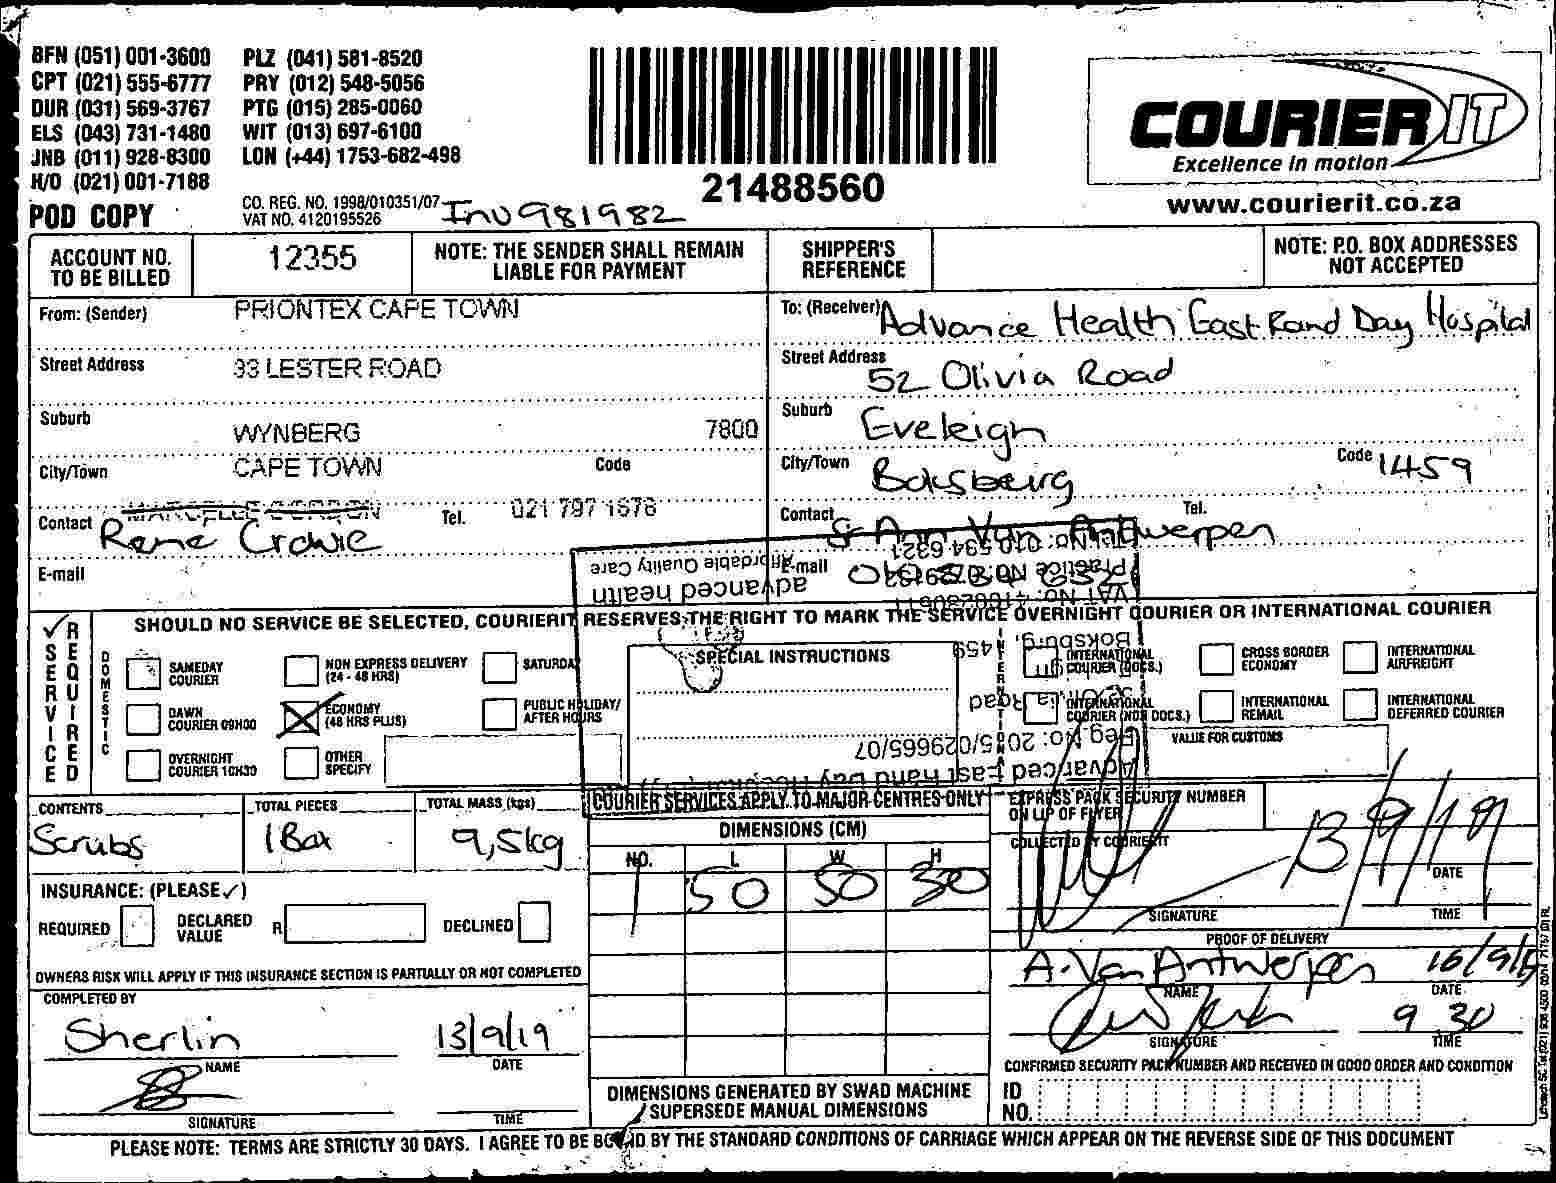 BFN (051) 001-3600 PLZ (041) 581-8520
CPT (021) 555-6777 PRY (012) 548-5056
DUR (031) 569-3767 PTG (015) 285-0060
ELS (043) 731-1480 WIT (013) 697-6100
JNB (011) 928-8300 LON (+44) 1753-682-498
H/O (021) 001-7188
POD COPY
CO. REG. NO. 1998/010351/07
VAT NO. 4120195526
Inv 981982
21488560
COURIER IT
Excellence in motion
www.courierit.co.za
ACCOUNT NO. TO BE BILLED
12355
NOTE: THE SENDER SHALL REMAIN LIABLE FOR PAYMENT
SHIPPER'S REFERENCE
NOTE: P.O. BOX ADDRESSES NOT ACCEPTED
From: (Sender) PRIONTEX CAPE TOWN
Street Address 33 LESTER ROAD
Suburb WYNBERG 7800
City/Town CAPE TOWN Code
Contact Rene Crowie Tel. 021 797 1678
E-mail
To: (Receiver) Advance Health East Rand Day Hospital
Street Address 52 Olivia Road
Suburb Eveleigh
City/Town Boksburg Code 1459
Contact Sr Ann Van Antwerpen Tel.
E-mail
advanced health
Affordable Quality Care
Tel No: 010 594 6321
Boksburg, 1459
Reg No: 2005/029665/07
SERVICE REQUIRED
SHOULD NO SERVICE BE SELECTED, COURIERIT RESERVES THE RIGHT TO MARK THE SERVICE OVERNIGHT COURIER OR INTERNATIONAL COURIER
DOMESTIC
SAMEDAY COURIER
DAWN COURIER 09H00
OVERNIGHT COURIER 10H30
NON EXPRESS DELIVERY (24 - 48 HRS)
ECONOMY (48 HRS PLUS)
OTHER SPECIFY
SATURDAY
PUBLIC HOLIDAY/ AFTER HOURS
SPECIAL INSTRUCTIONS
INTERNATIONAL
INTERNATIONAL COURIER (DOCS.)
INTERNATIONAL COURIER (NON DOCS.)
CROSS BORDER ECONOMY
INTERNATIONAL REMAIL
INTERNATIONAL AIRFREIGHT
INTERNATIONAL DEFERRED COURIER
VALUE FOR CUSTOMS
CONTENTS Scrubs
TOTAL PIECES 1 Box
TOTAL MASS (kgs) 9,5kg
COURIER SERVICES APPLY TO MAJOR CENTRES ONLY
DIMENSIONS (CM)
NO. L W H
1 50 50 30
EXPRESS PACK SECURITY NUMBER ON LIP OF FLYER
COLLECTED BY COURIERIT
13/9/19
DATE
SIGNATURE TIME
INSURANCE: (PLEASE ✓)
REQUIRED DECLARED VALUE R DECLINED
OWNERS RISK WILL APPLY IF THIS INSURANCE SECTION IS PARTIALLY OR NOT COMPLETED
COMPLETED BY
Sherlin 13/9/19
NAME DATE
SIGNATURE TIME
PROOF OF DELIVERY
A. Van Antwerpen 16/9/19
NAME DATE
9 30
SIGNATURE TIME
CONFIRMED SECURITY PACK NUMBER AND RECEIVED IN GOOD ORDER AND CONDITION
ID NO.
DIMENSIONS GENERATED BY SWAD MACHINE SUPERSEDE MANUAL DIMENSIONS
PLEASE NOTE: TERMS ARE STRICTLY 30 DAYS. I AGREE TO BE BOUND BY THE STANDARD CONDITIONS OF CARRIAGE WHICH APPEAR ON THE REVERSE SIDE OF THIS DOCUMENT